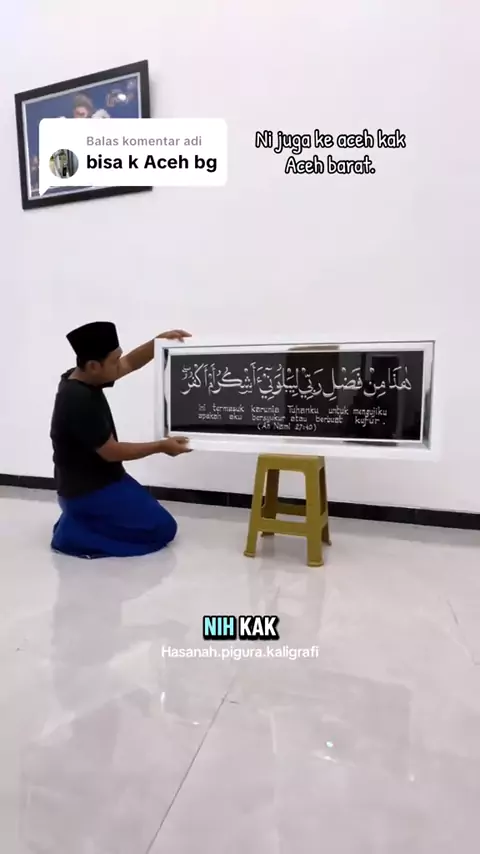 Balas komentar adi
bisa k Aceh bg
Ni juga ke aceh kak
Aceh barat.
هٰذَا مِنْ فَضْلِ رَبِّيْ لِيَبْلُوَنِيْٓ ءَاَشْكُرُ اَمْ اَكْفُرُ
Ini termasuk karunia Tuhanku untuk mengujiku
apakah aku bersyukur atau berbuat kufur.
(An Naml 27:40)
NIH KAK
Hasanah.pigura.kaligrafi